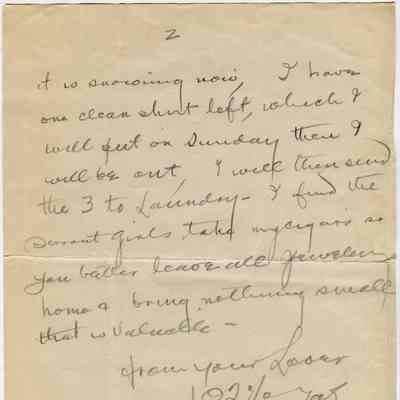 2
it is snowing now, I have
one clean shirt left, which I
will put on Sunday then I
will be out, I will then send
the 3 to Laundry - I find the
servant girls take my cigars so
you better leave all jewelery
home & bring nothing small
that is valuable -
from your Lover
102%